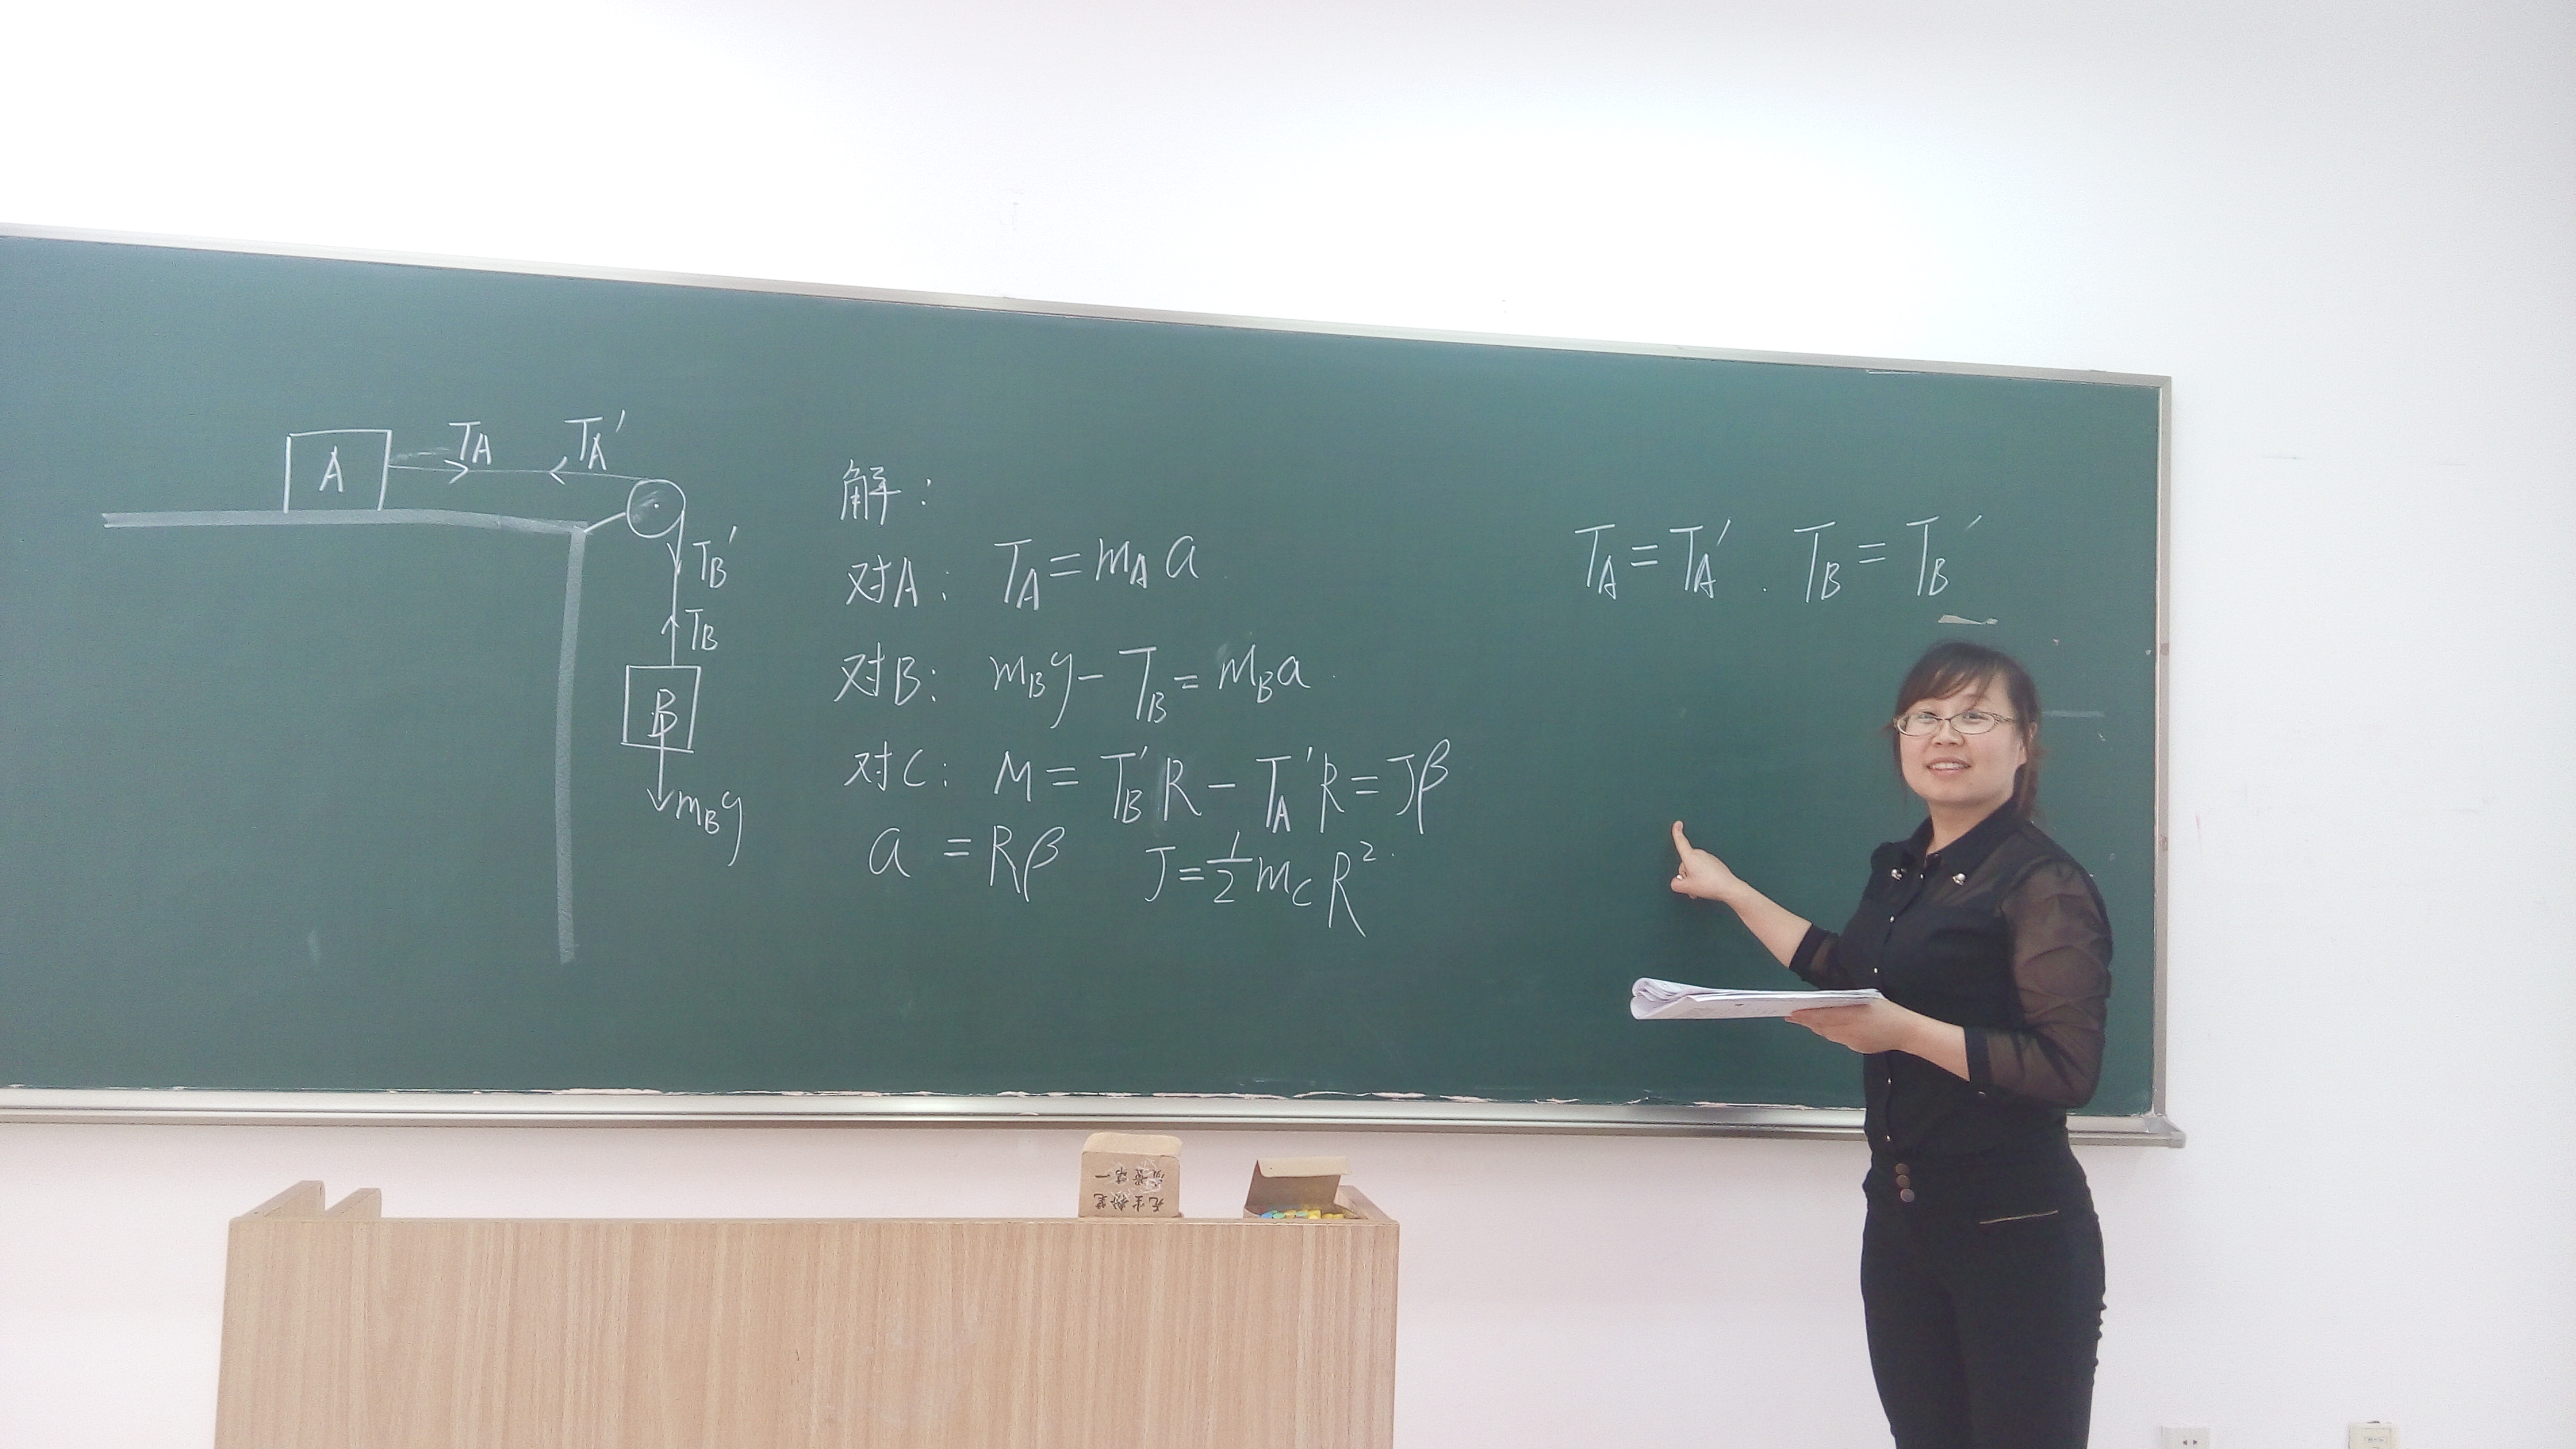 A
T_A
T_A'
T_B'
T_B
B
m_B g
解：
对A： T_A = m_A a
对B： m_B g - T_B = m_B a
对C： M = T_B' R - T_A' R = Jβ
a = Rβ J = 1/2 m_C R²
T_A = T_A' . T_B = T_B'